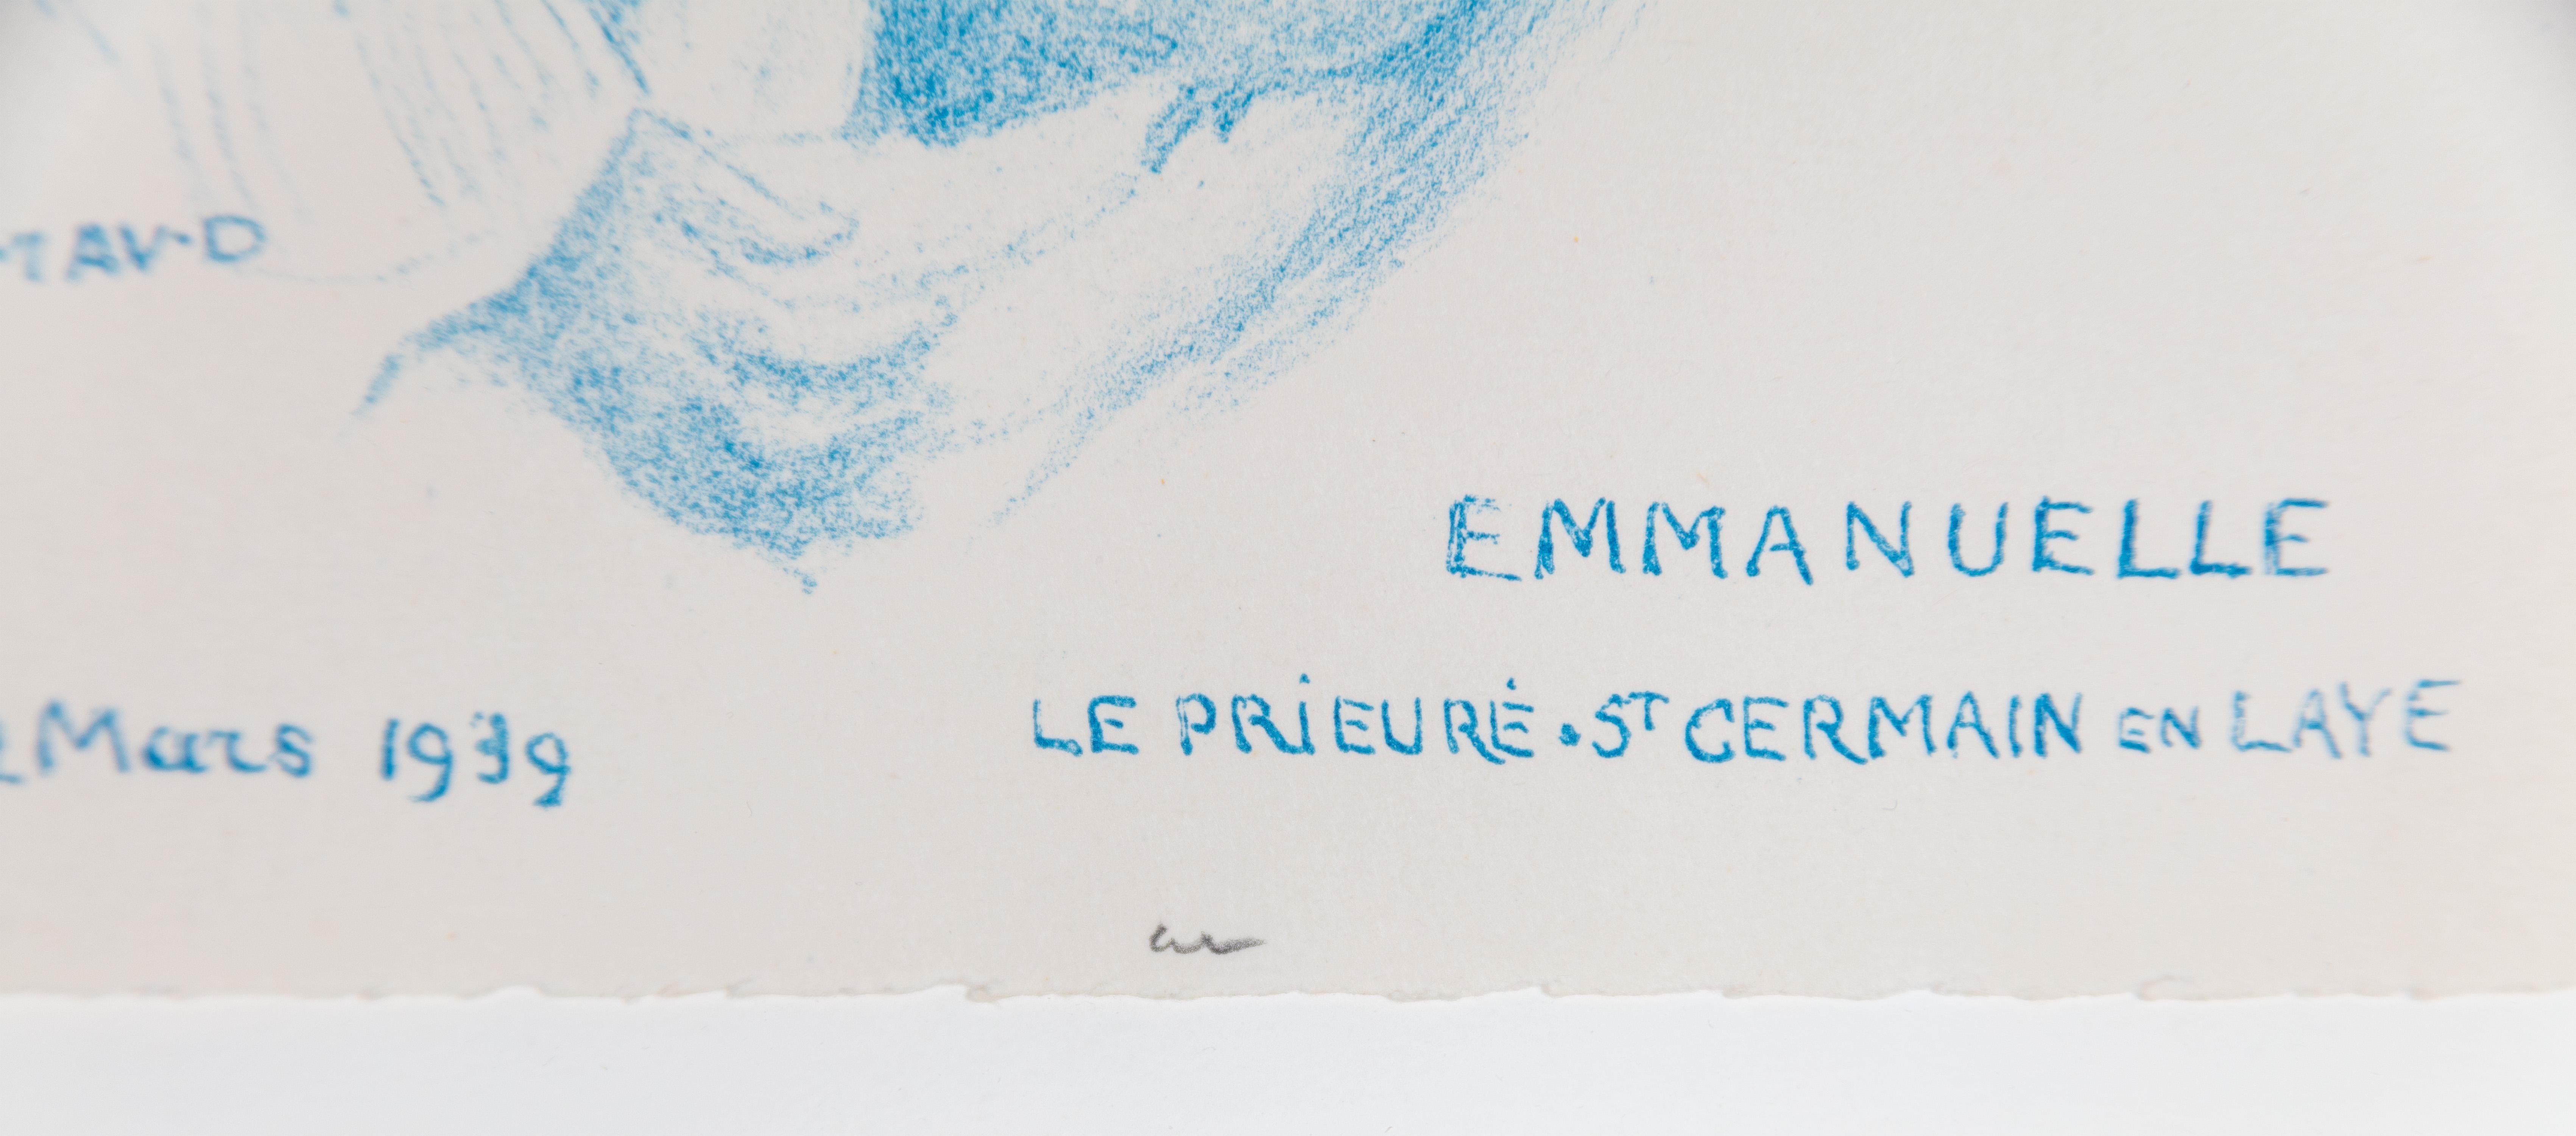 EMMANUELLE
Mars 1939
LE PRIEURÉ • ST GERMAIN EN LAYE